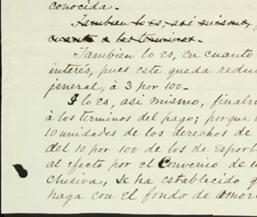 conocida.-
Tambien lo es, asi mismo, en
cuanto a los terminos.
Tambien lo es, en cuanto
interés, pues este queda redu
jeneral, à 3 por 100.-
I lo es, asi mismo, finalm
à los terminos del pago; porque
10 unidades de los derechos de
del 10 por 100 de los de esport
al efecto por el Convenio de
clusiva, se ha establecido q
haga con el fondo de amor